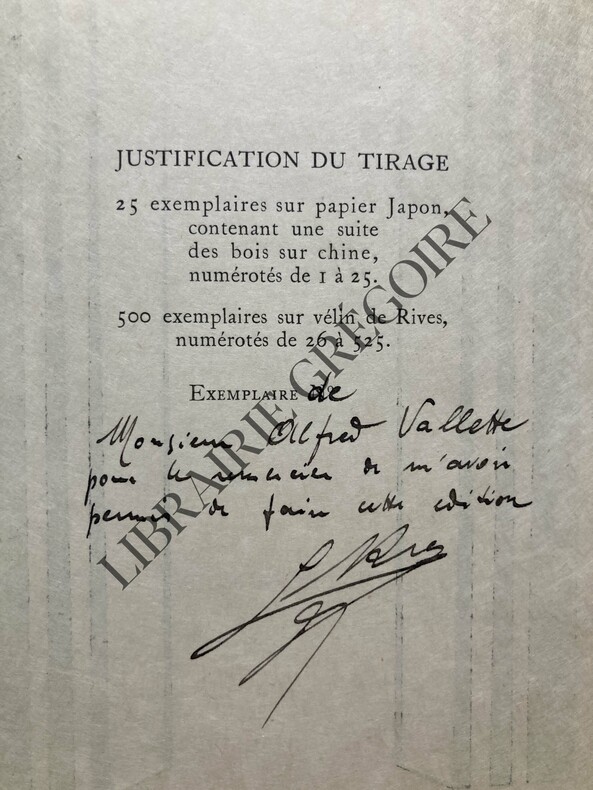 JUSTIFICATION DU TIRAGE
25 exemplaires sur papier Japon,
contenant une suite
des bois sur chine,
numérotés de 1 à 25.
500 exemplaires sur vélin de Rives,
numérotés de 26 à 525.
EXEMPLAIRE N° de
Monsieur Alfred Vallette
pour le remercier de m'avoir
permis de faire cette edition
LIBRAIRIE GRÉGOIRE